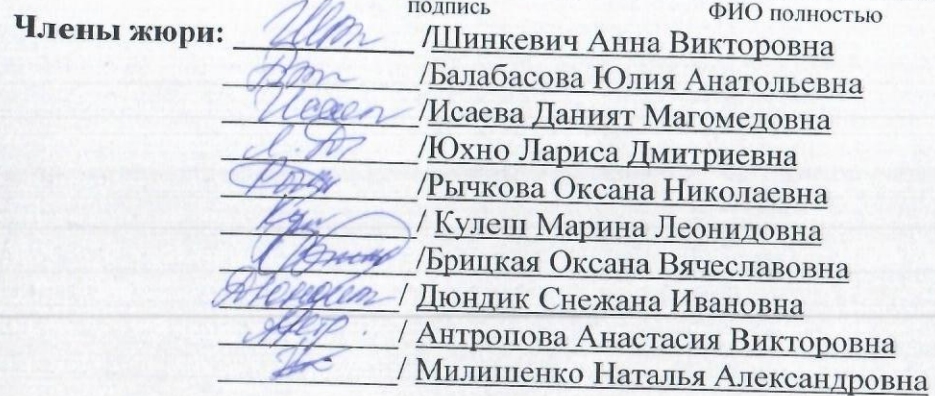 подпись ФИО полностью
Члены жюри: /Шинкевич Анна Викторовна
/Балабасова Юлия Анатольевна
/Исаева Даният Магомедовна
/Юхно Лариса Дмитриевна
/Рычкова Оксана Николаевна
/ Кулеш Марина Леонидовна
/Брицкая Оксана Вячеславовна
/ Дюндик Снежана Ивановна
/ Антропова Анастасия Викторовна
/ Милишенко Наталья Александровна